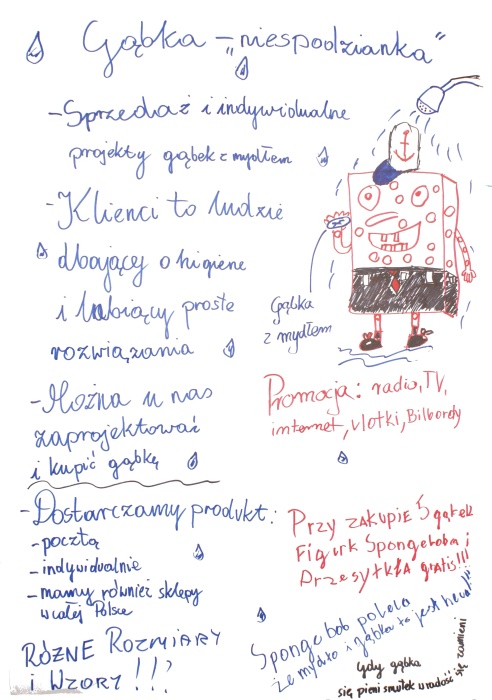 Gąbka – „niespodzianka"
- Sprzedaż i indywidualne
projekty gąbek z mydłem
- Klienci to ludzie
dbający o higiene
i lubiący proste
rozwiązania
- Można u nas
zaprojektować
i kupić gąbkę
Gąbka
z mydłem
Promocja: radio, TV,
internet, ulotki, Bilbordy
- Dostarczamy produkt:
- pocztą
- indywidualnie
- mamy również sklepy
w całej Polsce
RÓŻNE ROZMIARY
i WZORY !!!
PRZY ZAKUPIE 5 gąbek
Figurk Spongeboba i
Przesyłka gratis!!!
Spongebob poleca
że mydło i gąbka to jest
Gdy gąbka
się pieni smutek w radość się zamieni